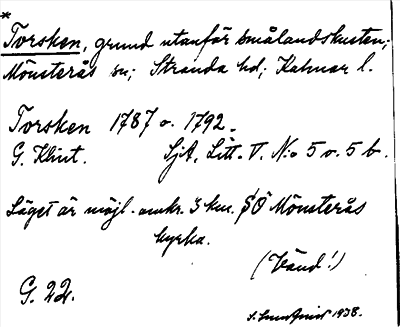 *
Torsken, grund utanför smålandskusten;
Mönsterås sn; Stranda hd; Kalmar l.
Torsken 1787 o. 1792.
G. Klint. SjA, Litt. V. No 5 o. 5 b.
Läget är möjl. omkr. 3 km. SÖ Mönsterås
kyrka.
(Vänd!)
G. 22.
1938.